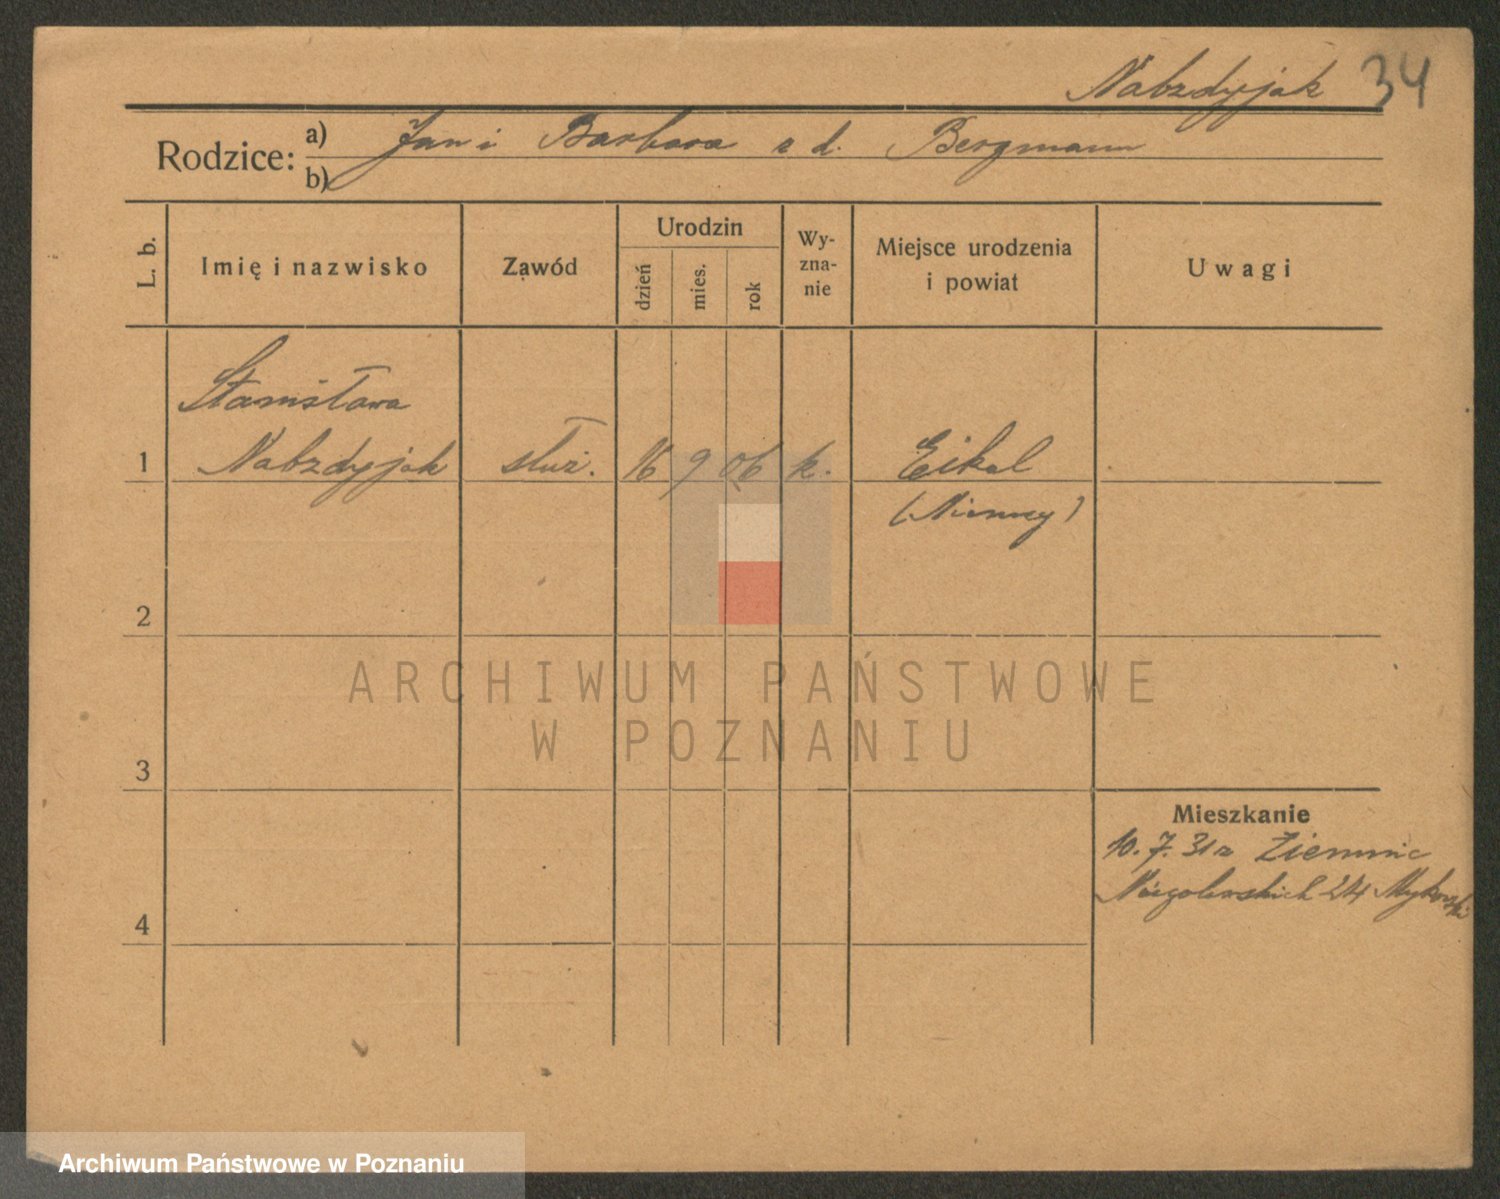 Nabzdyjak 34
Rodzice: a) Jan i Barbara z d. Bergmann
b)
L. b. Imię i nazwisko Zawód Urodzin dzień mies. rok Wyzna-nie Miejsce urodzenia i powiat Uwagi
Stanisława
1 Nabzdyjak służ. 16 9 06 k. Eikel
(Niemcy)
2
ARCHIWUM PAŃSTWOWE
W POZNANIU
3
Mieszkanie
10. 7. 31 z
4 Niegolewskich 24
Archiwum Państwowe w Poznaniu